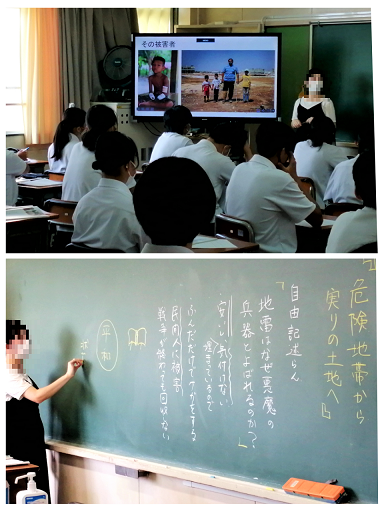 その被害者
「危険地帯から
実りの土地へ」
自由記述らん
「地雷はなぜ悪魔の
兵器とよばれるのか?」
・安い、気付けない
・ふんだだけでケガをする
民間人に被害
戦争が終わっても回収しない
平和